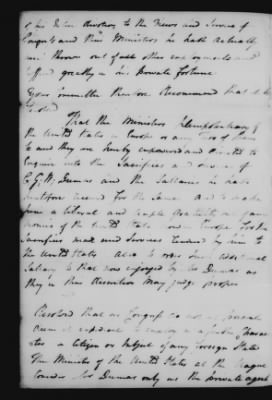 of his Desire Devotion to the Views and Service of
Congress and their Ministers he hath actually
been thrown out of all other employments and
suffered greatly in his private fortune
Your Committee therefore Recommend that it be
Resolved
That the Ministers Plenipotentiary of
the United States in Europe or any two of them
be and they are hereby empowered and directed to
Enquire into the Sacrifices and Services of
C. G. W. Dumas and the Salaries he hath
received for the Same and to make
him a liberal and ample
monies of the United States in Europe for the
Sacrifices made and Services rendered by him to
the United States also to order such additional
Salary to that now enjoyed by Mr Dumas as
they in their discretion may judge proper
Resolved that as Congress do not at present
deem it expedient to employ in a public Charac
ter a Citizen or Subject of any foreign State
the Minister of the United States at the Hague
consider Mr Dumas only as the private agent